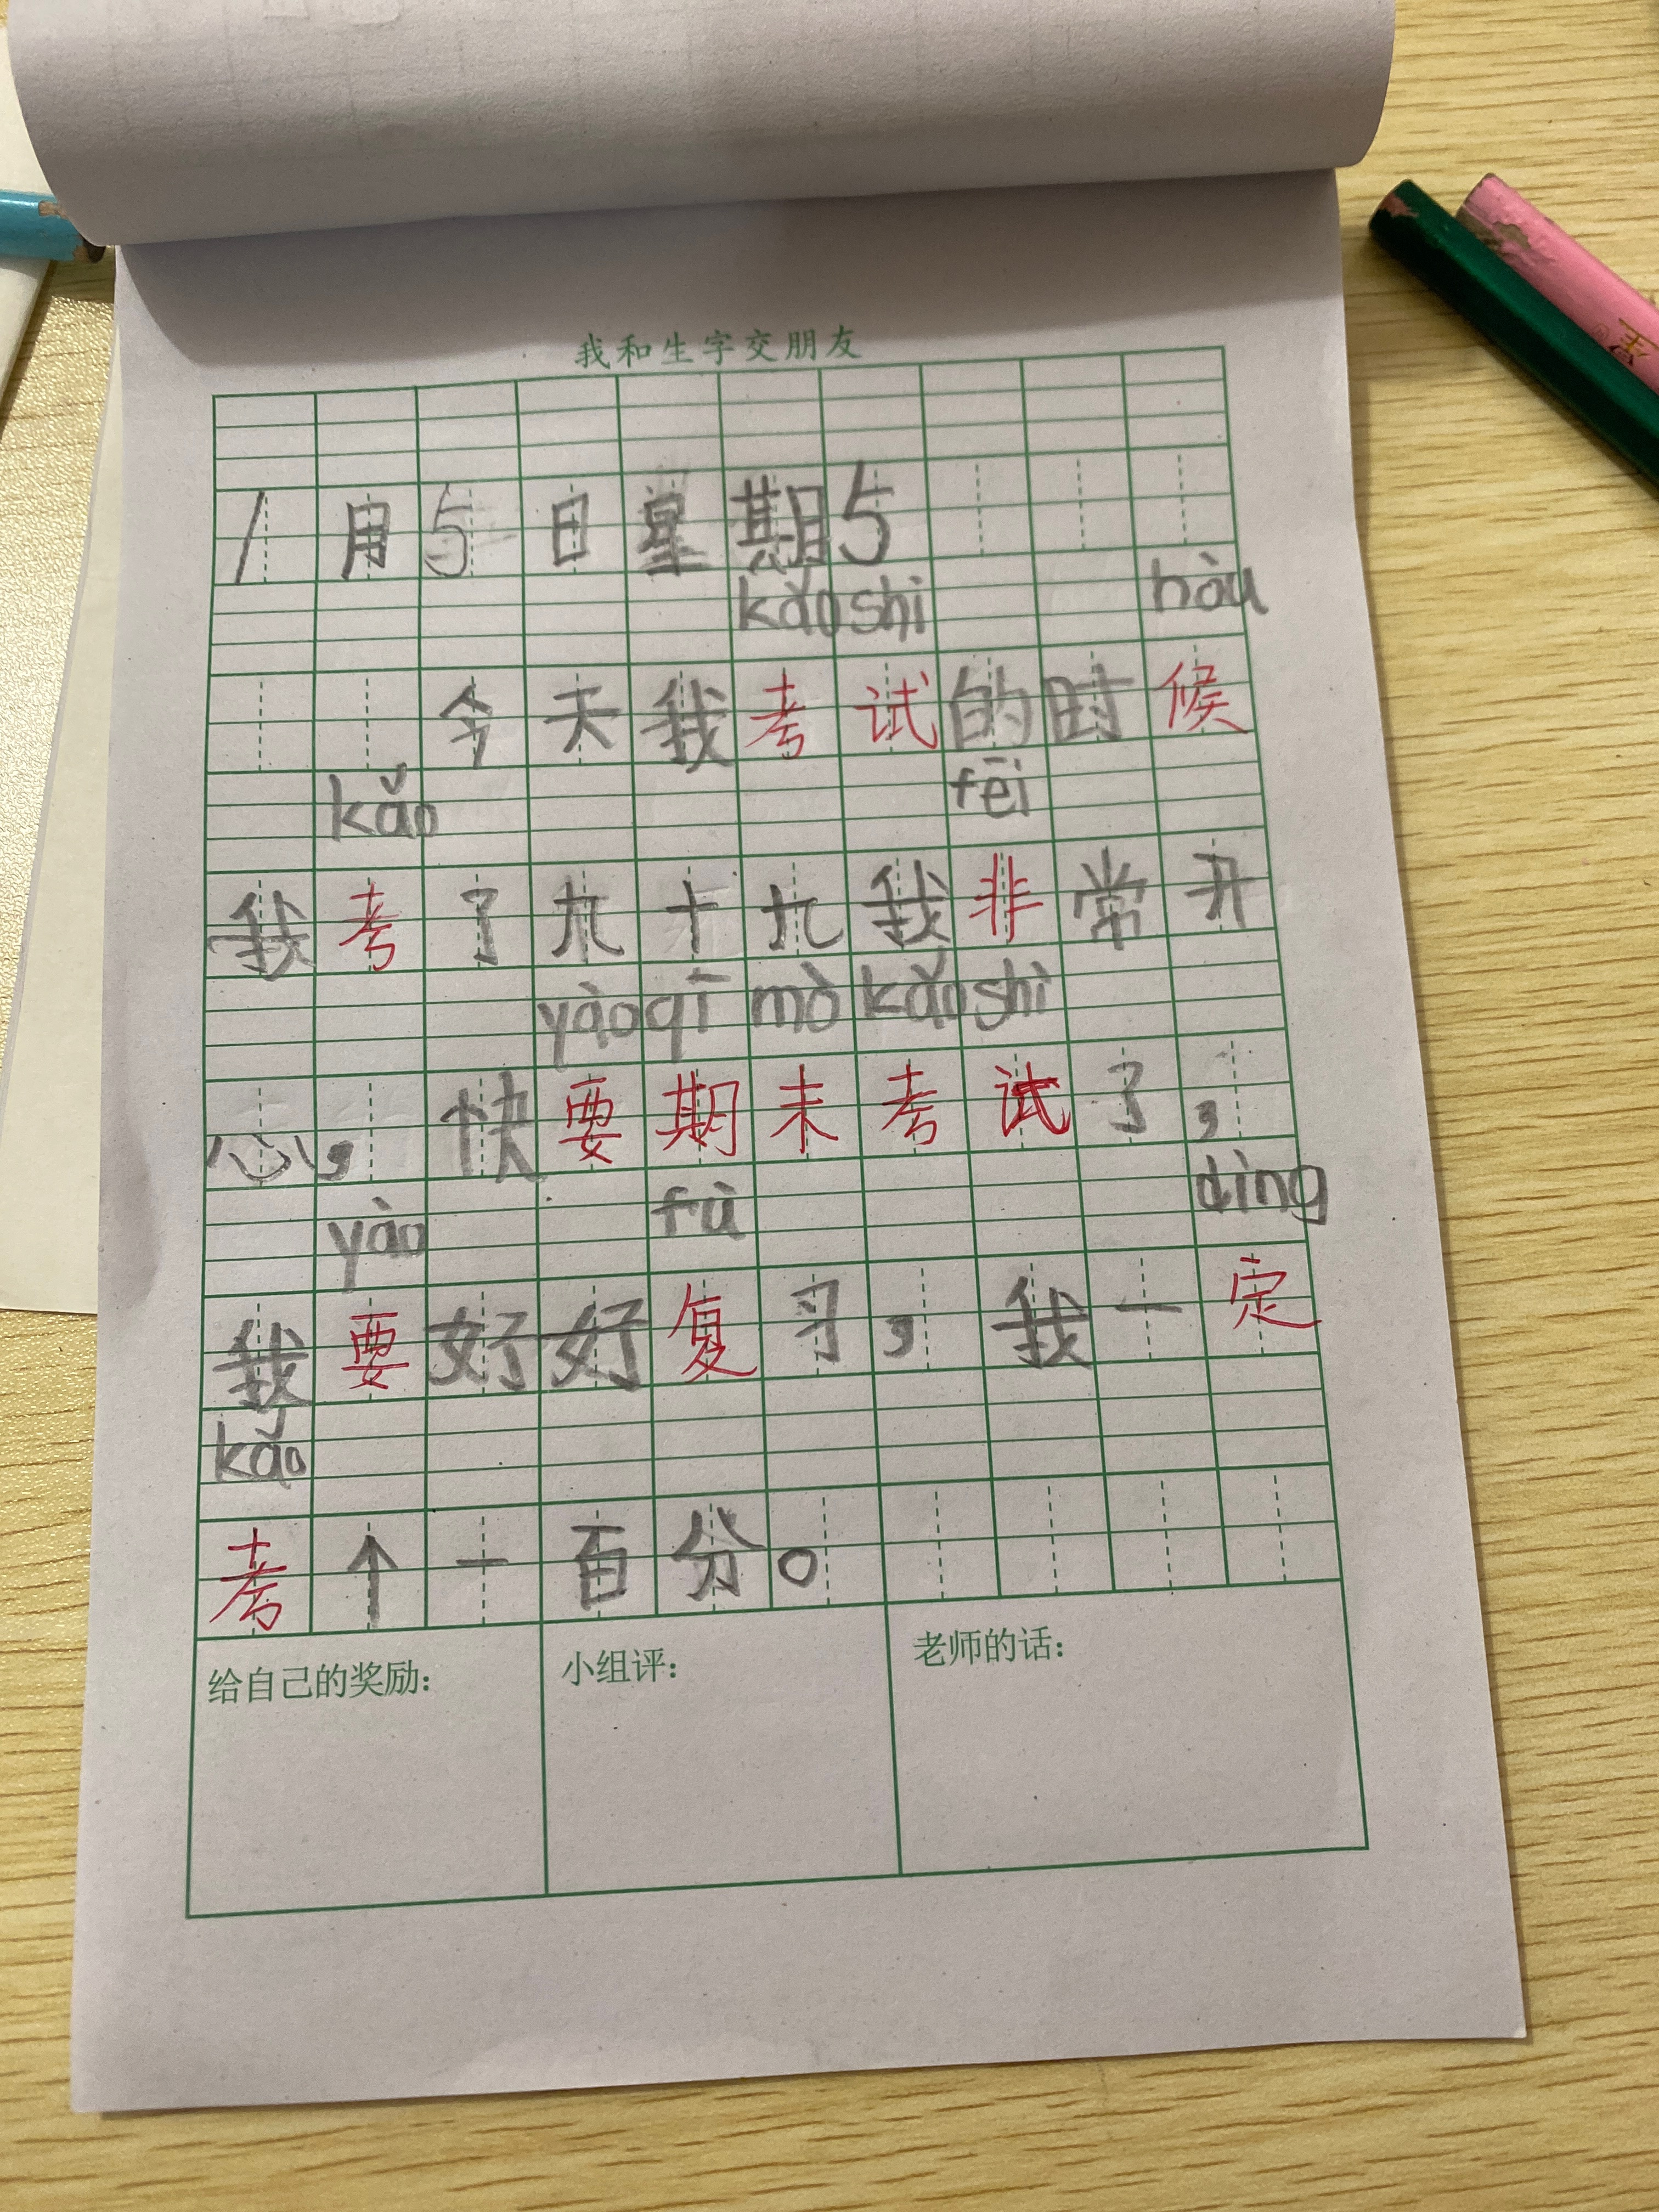 我和生字交朋友
1月5日星期5
kǎo shì hòu
今天我考试的时候
kǎo fēi
我考了九十九我非常开
yào qī mò kǎo shì
心，快要期末考试了，
yào fù dìng
我要好好复习，我一定
kǎo
考个一百分。
给自己的奖励：
小组评：
老师的话：